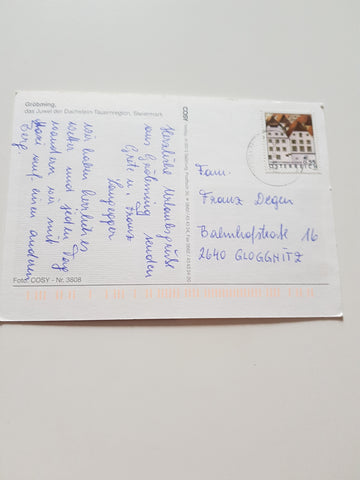 Gröbming,
das Juwel der Dachstein-Tauernregion, Steiermark
Herzliche Urlaubsgrüße
aus Gröbming senden
Grete u. Franz
Wir haben herrliches
Wetter und jeden Tag
wandern wir mit
auf einen anderen
Berg.
Foto: COSY - Nr. 3808
COSY
ÖSTERREICH
Fam.
Franz Degen
Bahnhofstraße 16
2640 GLOGGNITZ